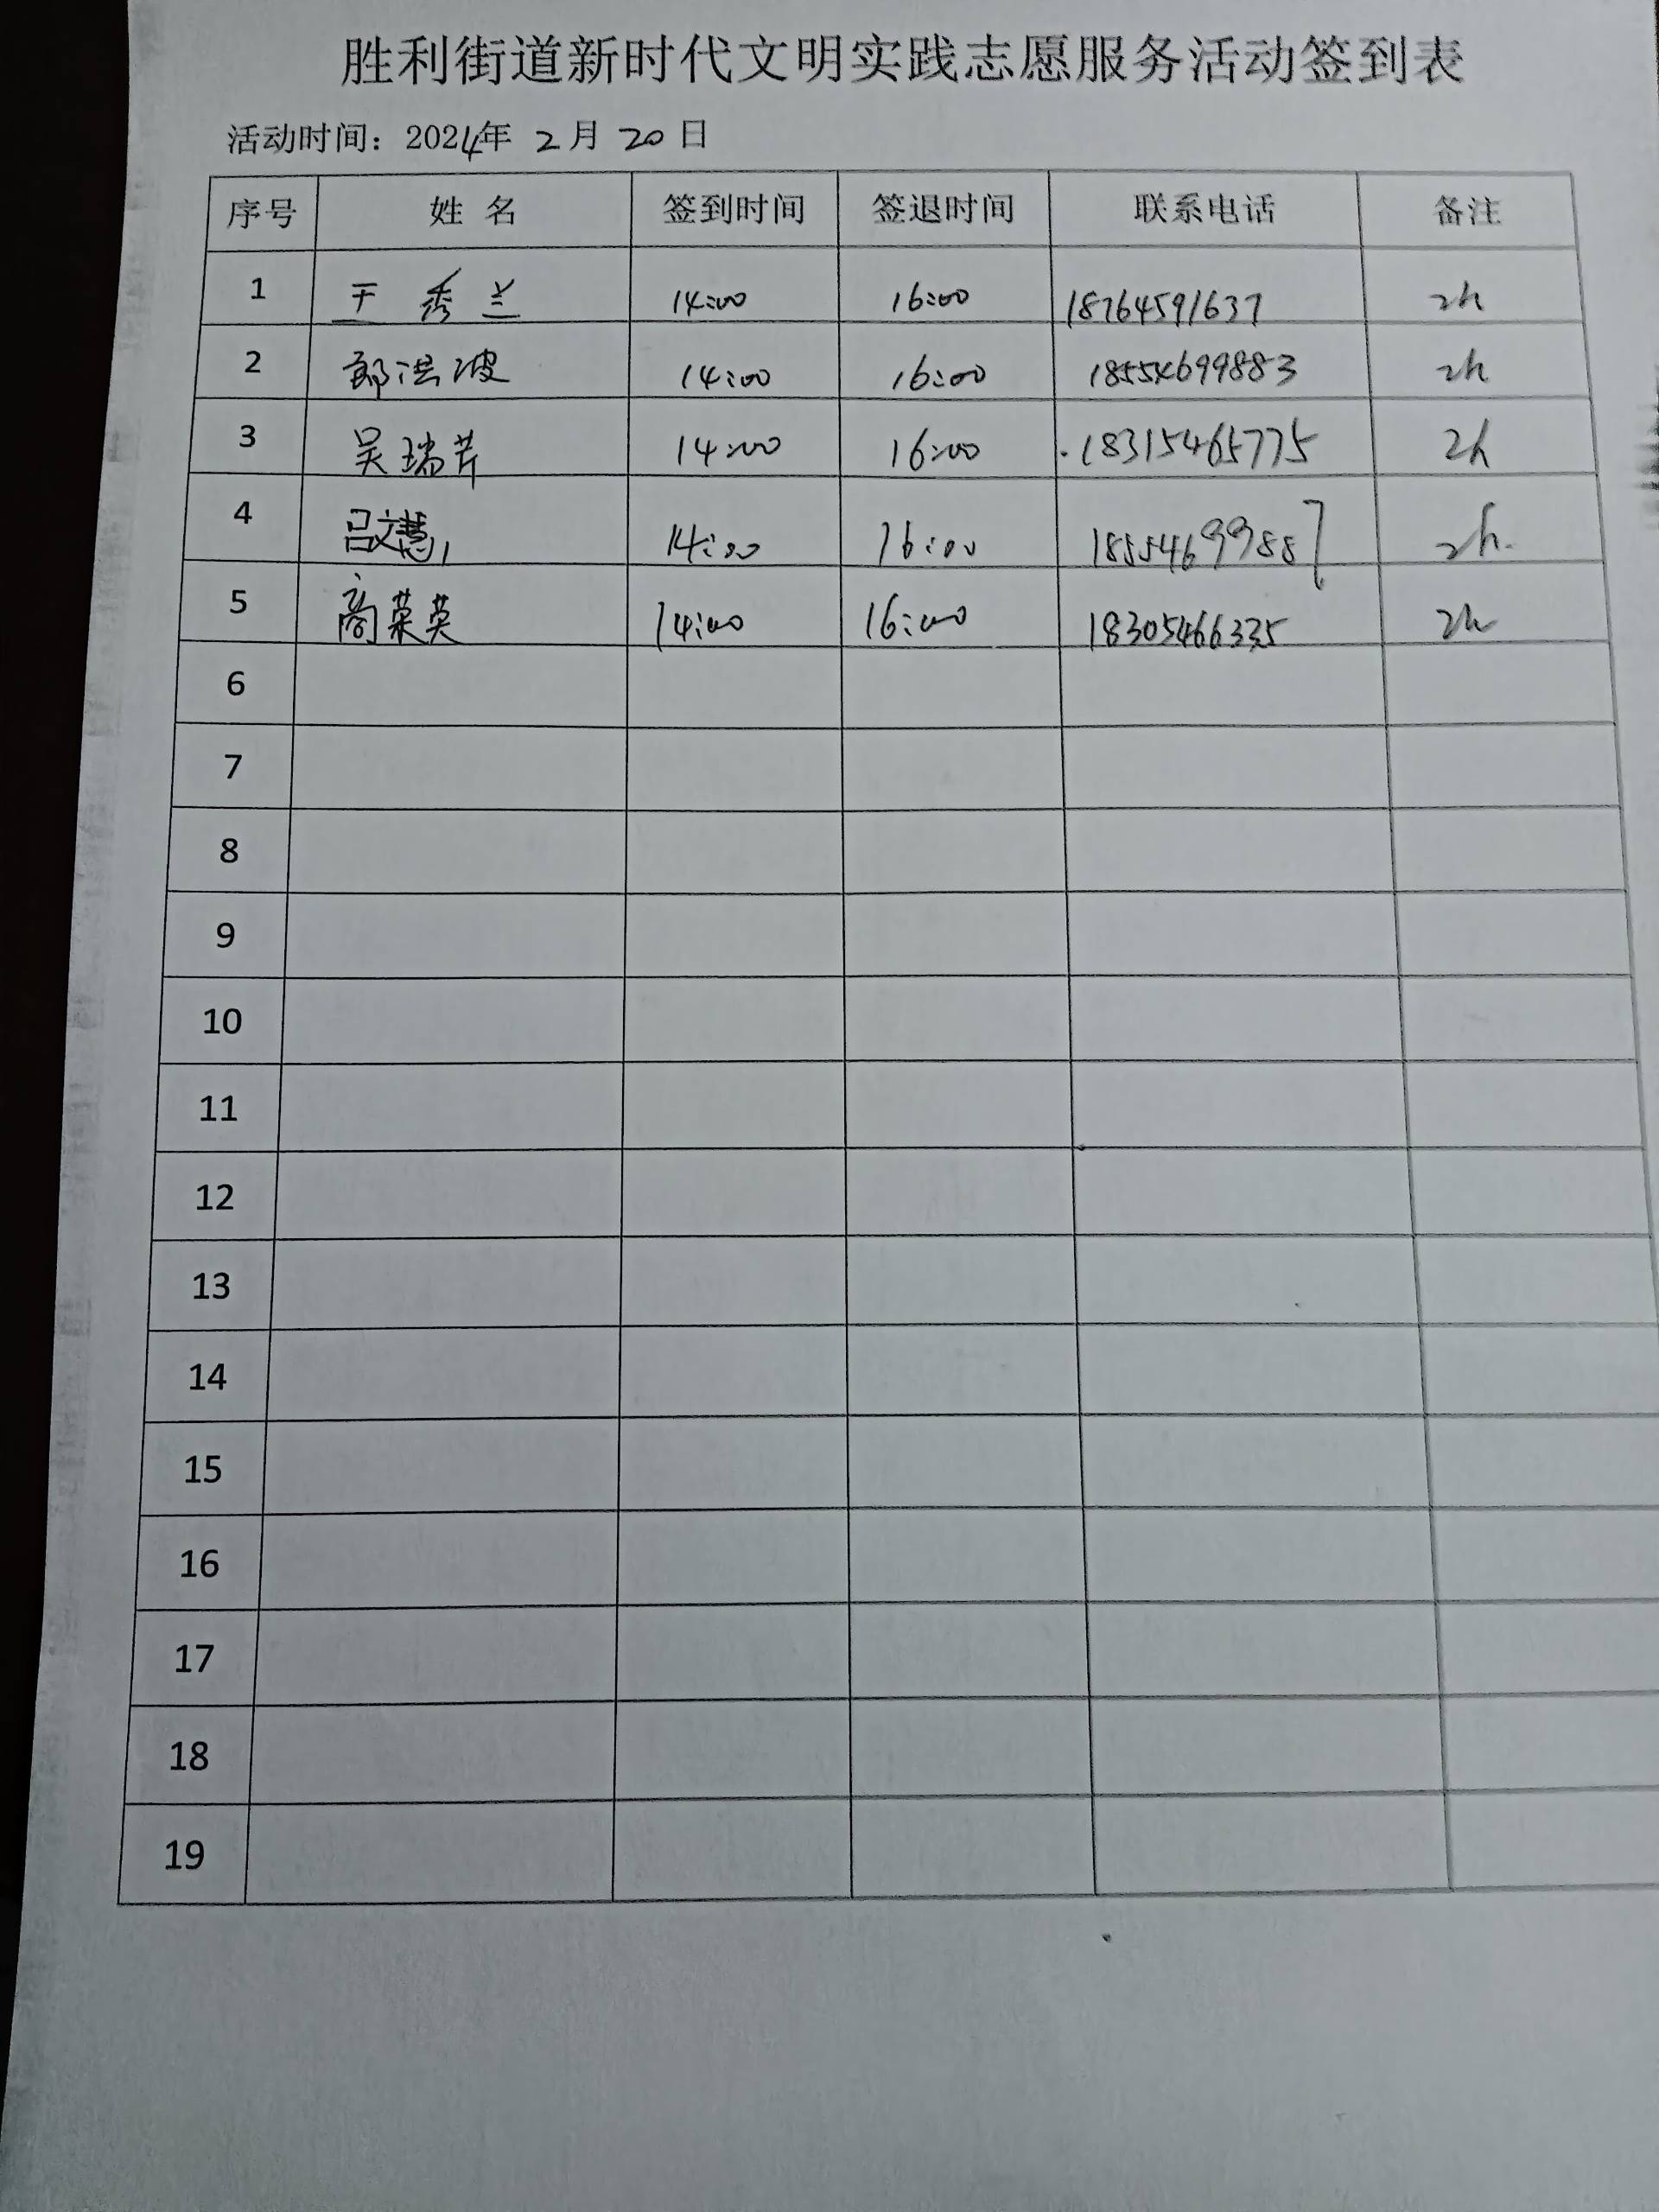 胜利街道新时代文明实践志愿服务活动签到表
活动时间：2024年 2 月 20 日
序号 姓 名 签到时间 签退时间 联系电话 备注
1 王秀兰 14:00 16:00 18764591637 2h
2 郭洪波 14:00 16:00 18554699883 2h
3 吴瑞芹 14:00 16:00 18315465775 2h
4 吕文慧 14:00 16:00 18554699887 2h
5 商荣英 14:00 16:00 18305466335 2h
6
7
8
9
10
11
12
13
14
15
16
17
18
19